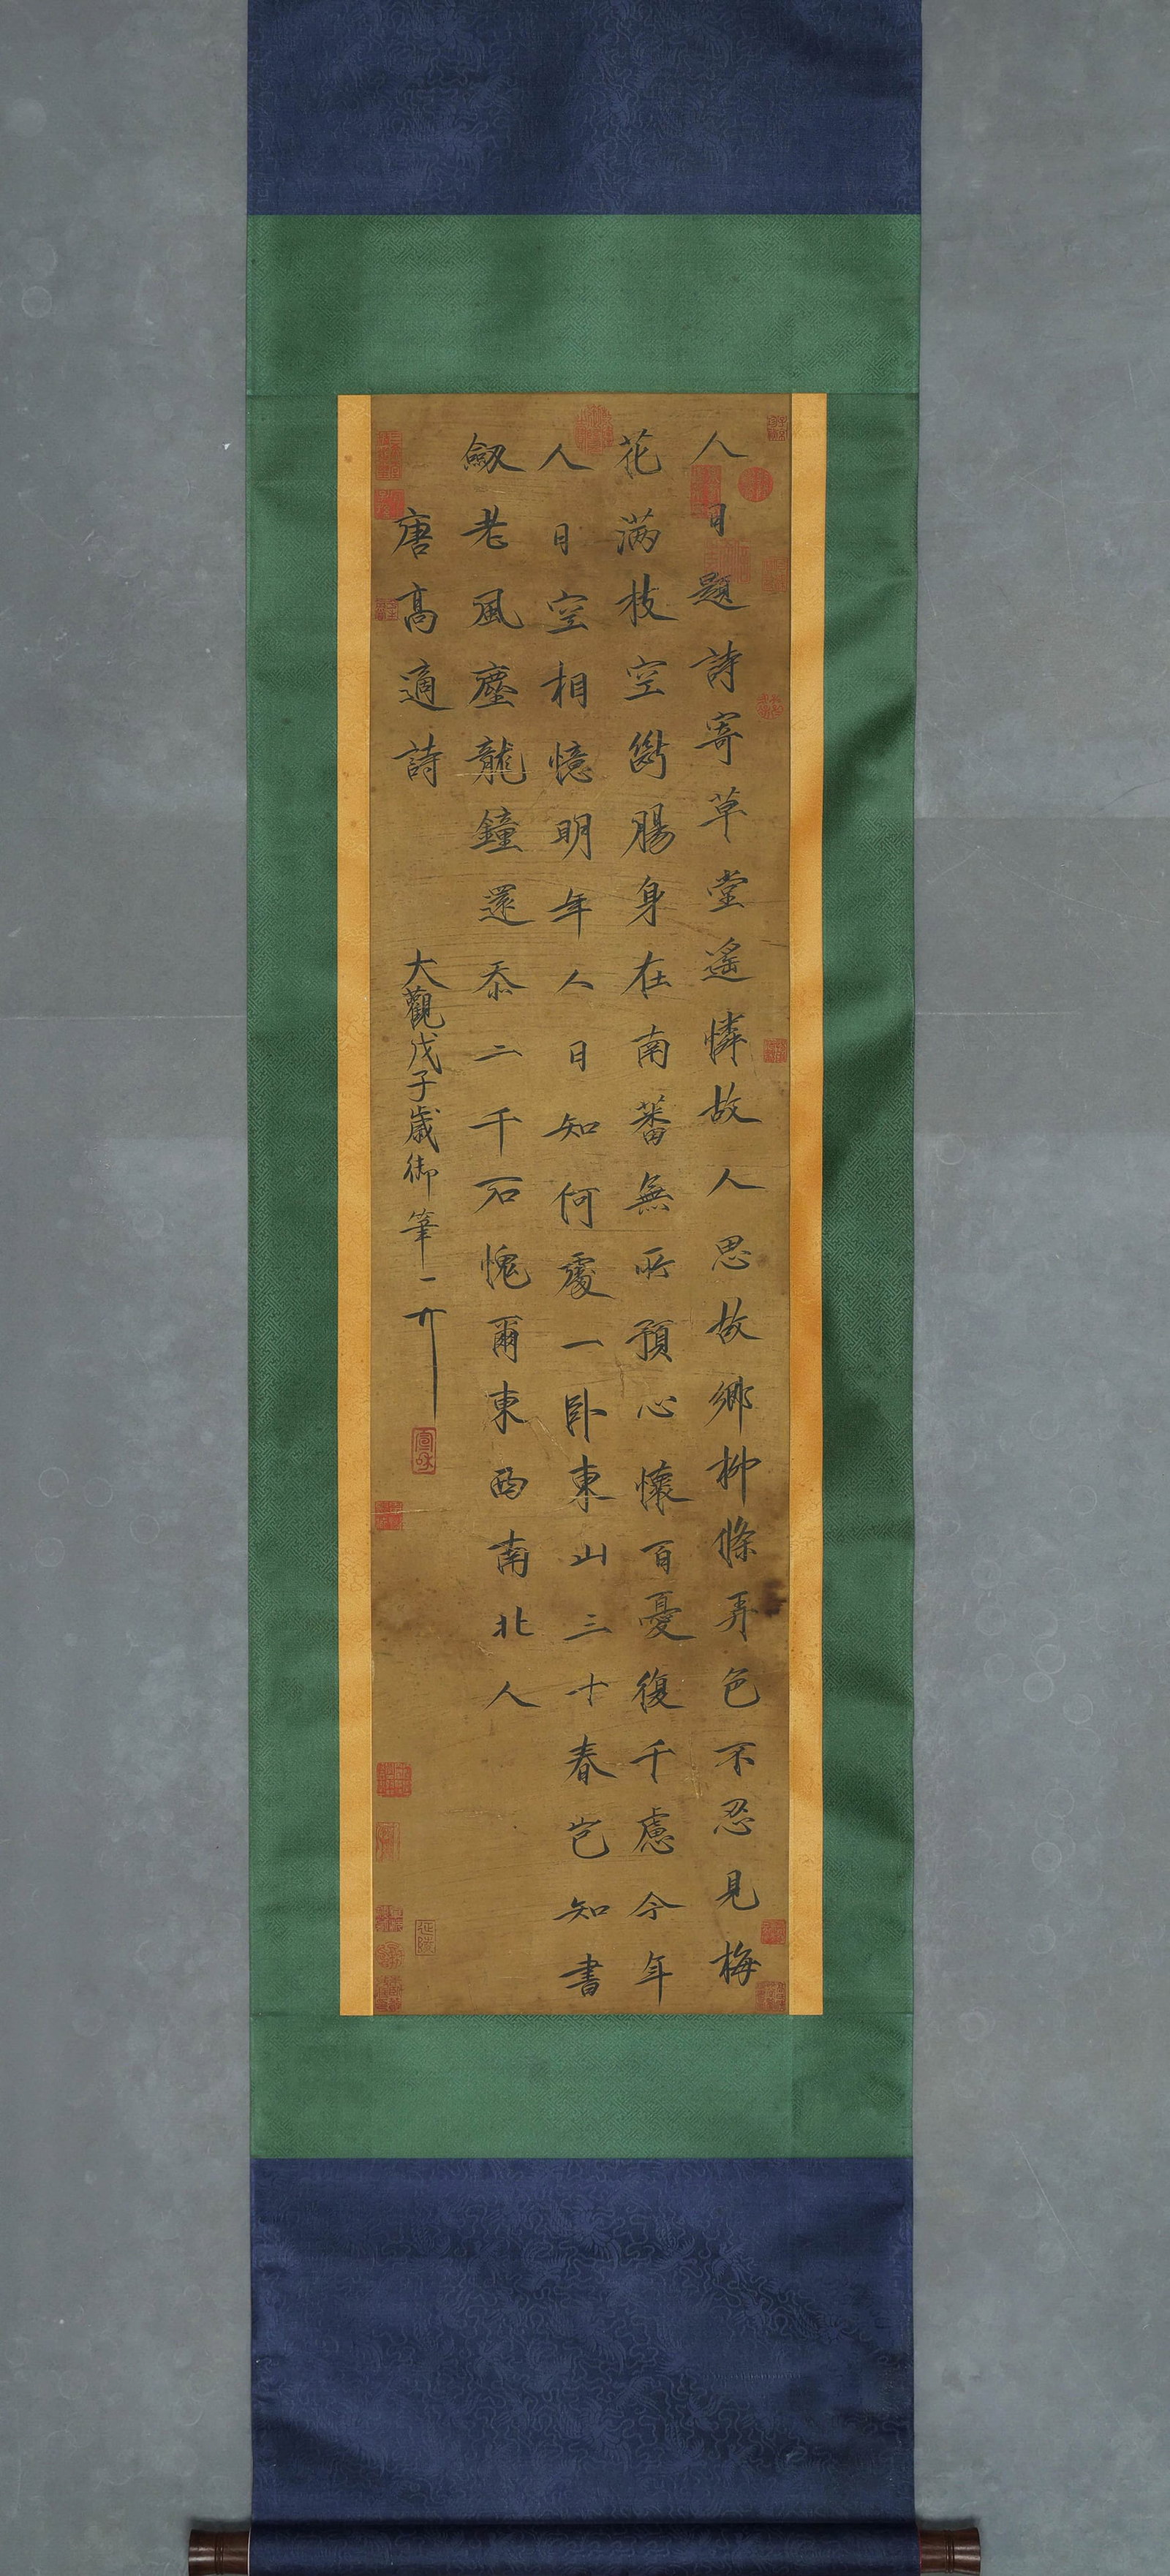 人日題詩寄草堂遙憐故人思故鄉柳條弄色不忍見梅
花满枝空斷腸身在南蕃無所預心懷百憂復千慮今年
人日空相憶明年人日知何處一卧東山三十春岂知書
劔老風塵龍鐘還忝二千石愧爾東西南北人
唐高適詩
大觀戊子歲御筆一丌
宣和